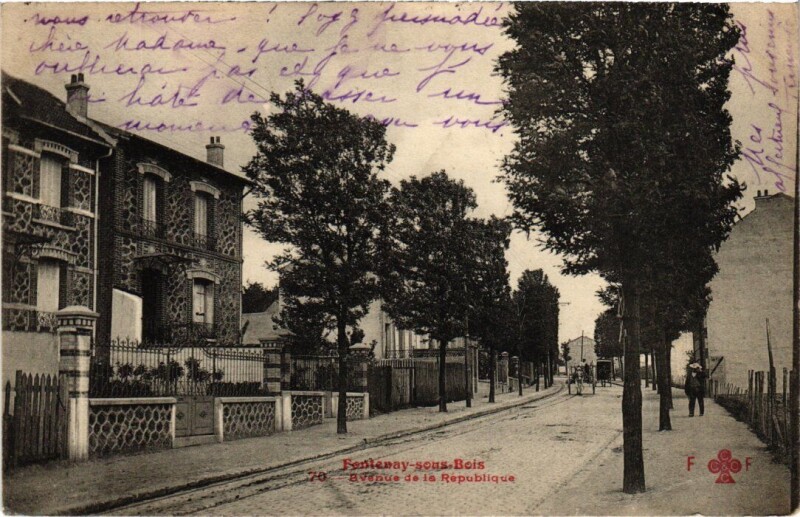 vous retrouver ! Soyez persuadée
chère Madame que je ne vous
oublierai pas et que j'
ai hâte de passer un
moment avec vous
Mes
affectueux
70 - Fontenay-sous-Bois
Avenue de la République
F F